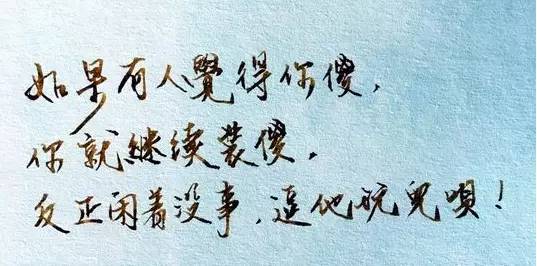 如果有人覺得你傻，
你就继续装傻，
反正闲着没事，逗他玩儿呗！